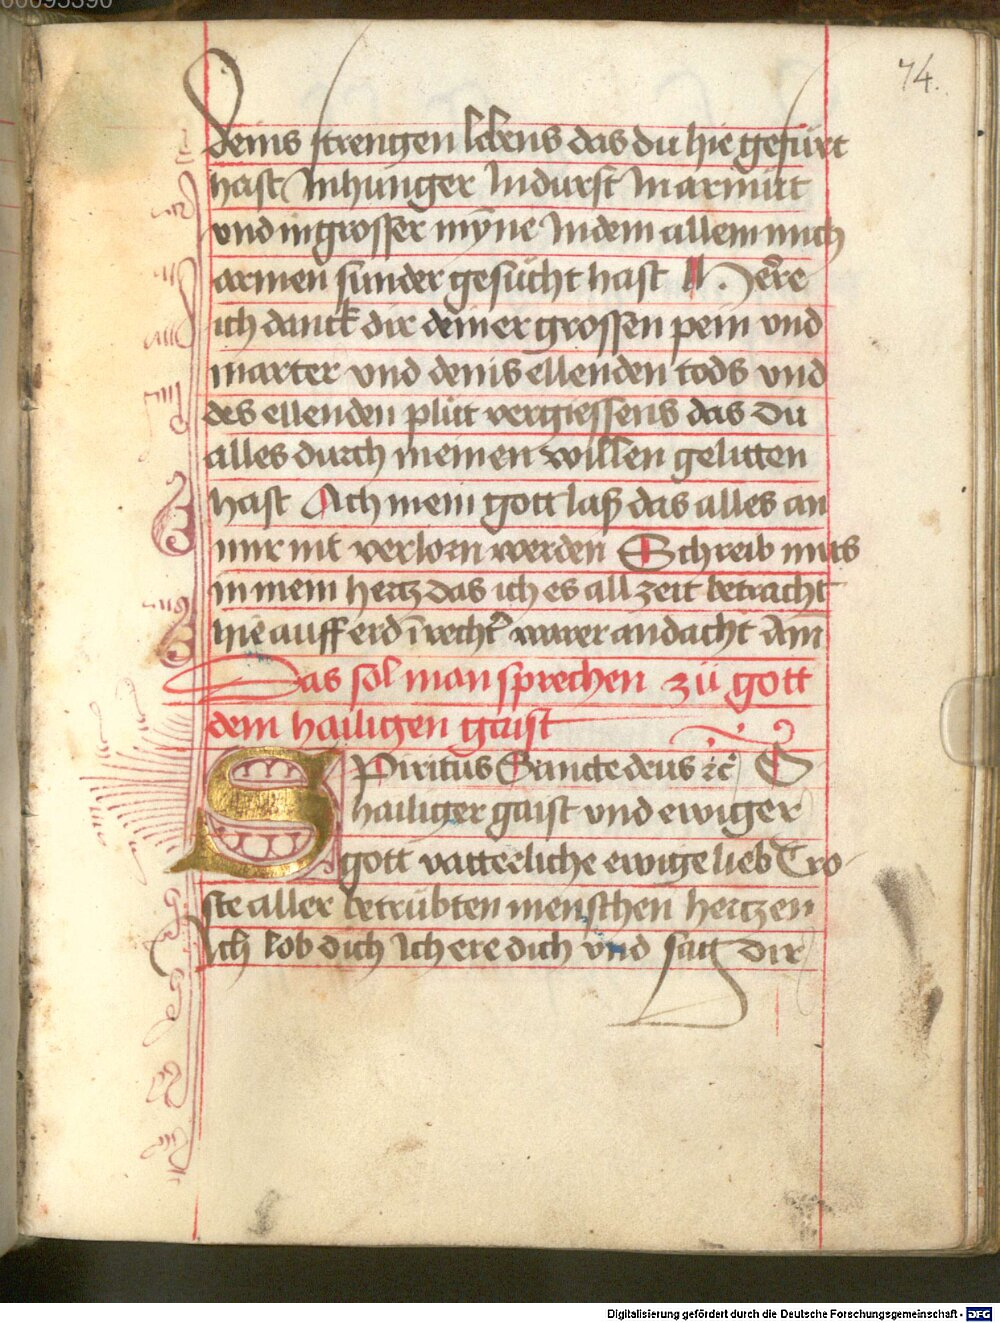 00095390
74.
deins strengen lebens das du hie gefürt
hast In hunger In durst In armutt
vnd in grosser mȳne In dem allem mich
armen sunder gesücht hast Here
ich danck dir deiner grossen pein vnd
marter vnd denis ellenden tods vnd
des ellenden plüt vergiessens das du
alles durch meinen willen gelitten
hast Ach mein gott laß das alles an
mir nit verlorn werden Schreib mirs
in mein hertz das ich es all zeit betracht
hie auff erd in recht' warer andacht Am̄
Das sol man sprechen zü gott
dem hailigen gaist
Spiritus Sancte deus ꝛc̄ O
hailiger gaist vnd ewiger
gott vatterliche ewige lieb Tro
ste aller betrübten menschen hertzen
Ich lob dich Ich ere dich vnd sag dir
Digitalisierung gefördert durch die Deutsche Forschungsgemeinschaft - DFG